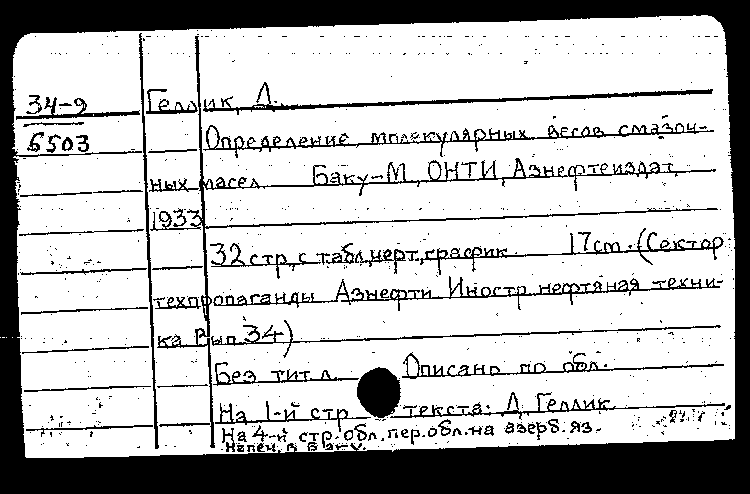 34-9 Геллик, Д.
6503 Определение молекулярных весов смазоч-
ных масел Баку-М, ОНТИ, Азнефтеиздат,
1933
32 стр, с табл, черт, график. 17 cm. (Сектор
техпропаганды Азнефти Иностр нефтяная техни-
ка Вып 34)
Без тит л. Описано по обл.
На 1-й стр текста: Д. Геллик.
На 4-й стр. обл. пер. обл. на азерб. яз.
Напеч. в Баку.